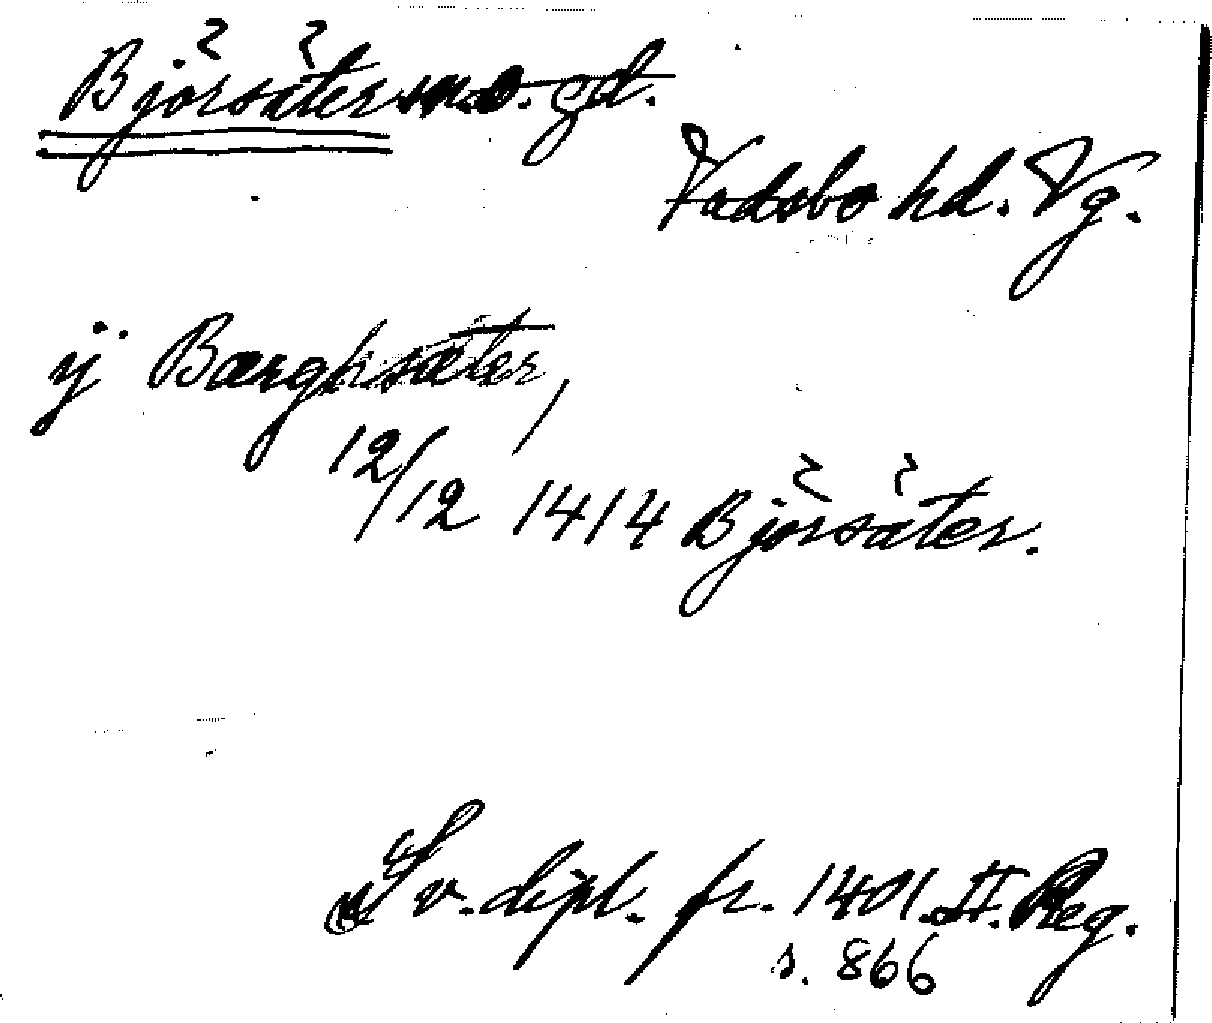 Björsäter sn o. gd.
Vadsbo hd. Vg.
ÿ Bærghsæter,
12/12 1414 Björsäter.
Sv. dipl. fr. 1401. II. Reg.
s. 866